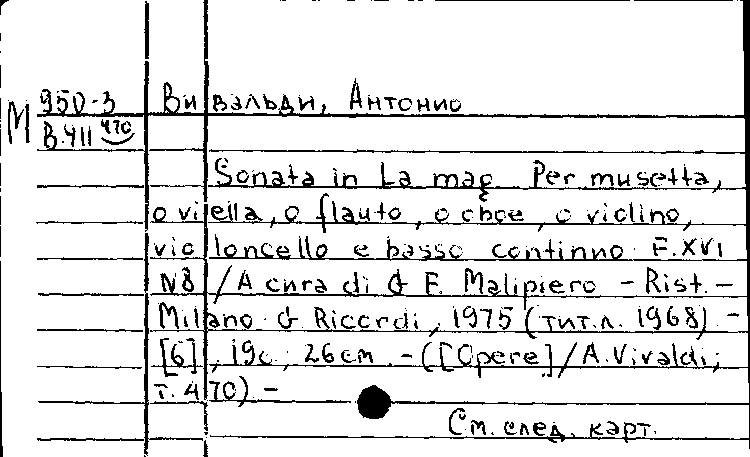 М 950-3 Вивальди, Антонио
В.411 470
Sonata in La mag. Per musetta,
o viella, o flauto, o oboe, o violino,
violoncello e basso continuo. F. XVI
N8 / A cura di G F. Malipiero – Rist. –
Milano: G Ricordi, 1975 (тит.л. 1968). –
[6], 19с.; 26 см. – ([Opere] / A. Vivaldi;
т. 470). –
См. след. карт.